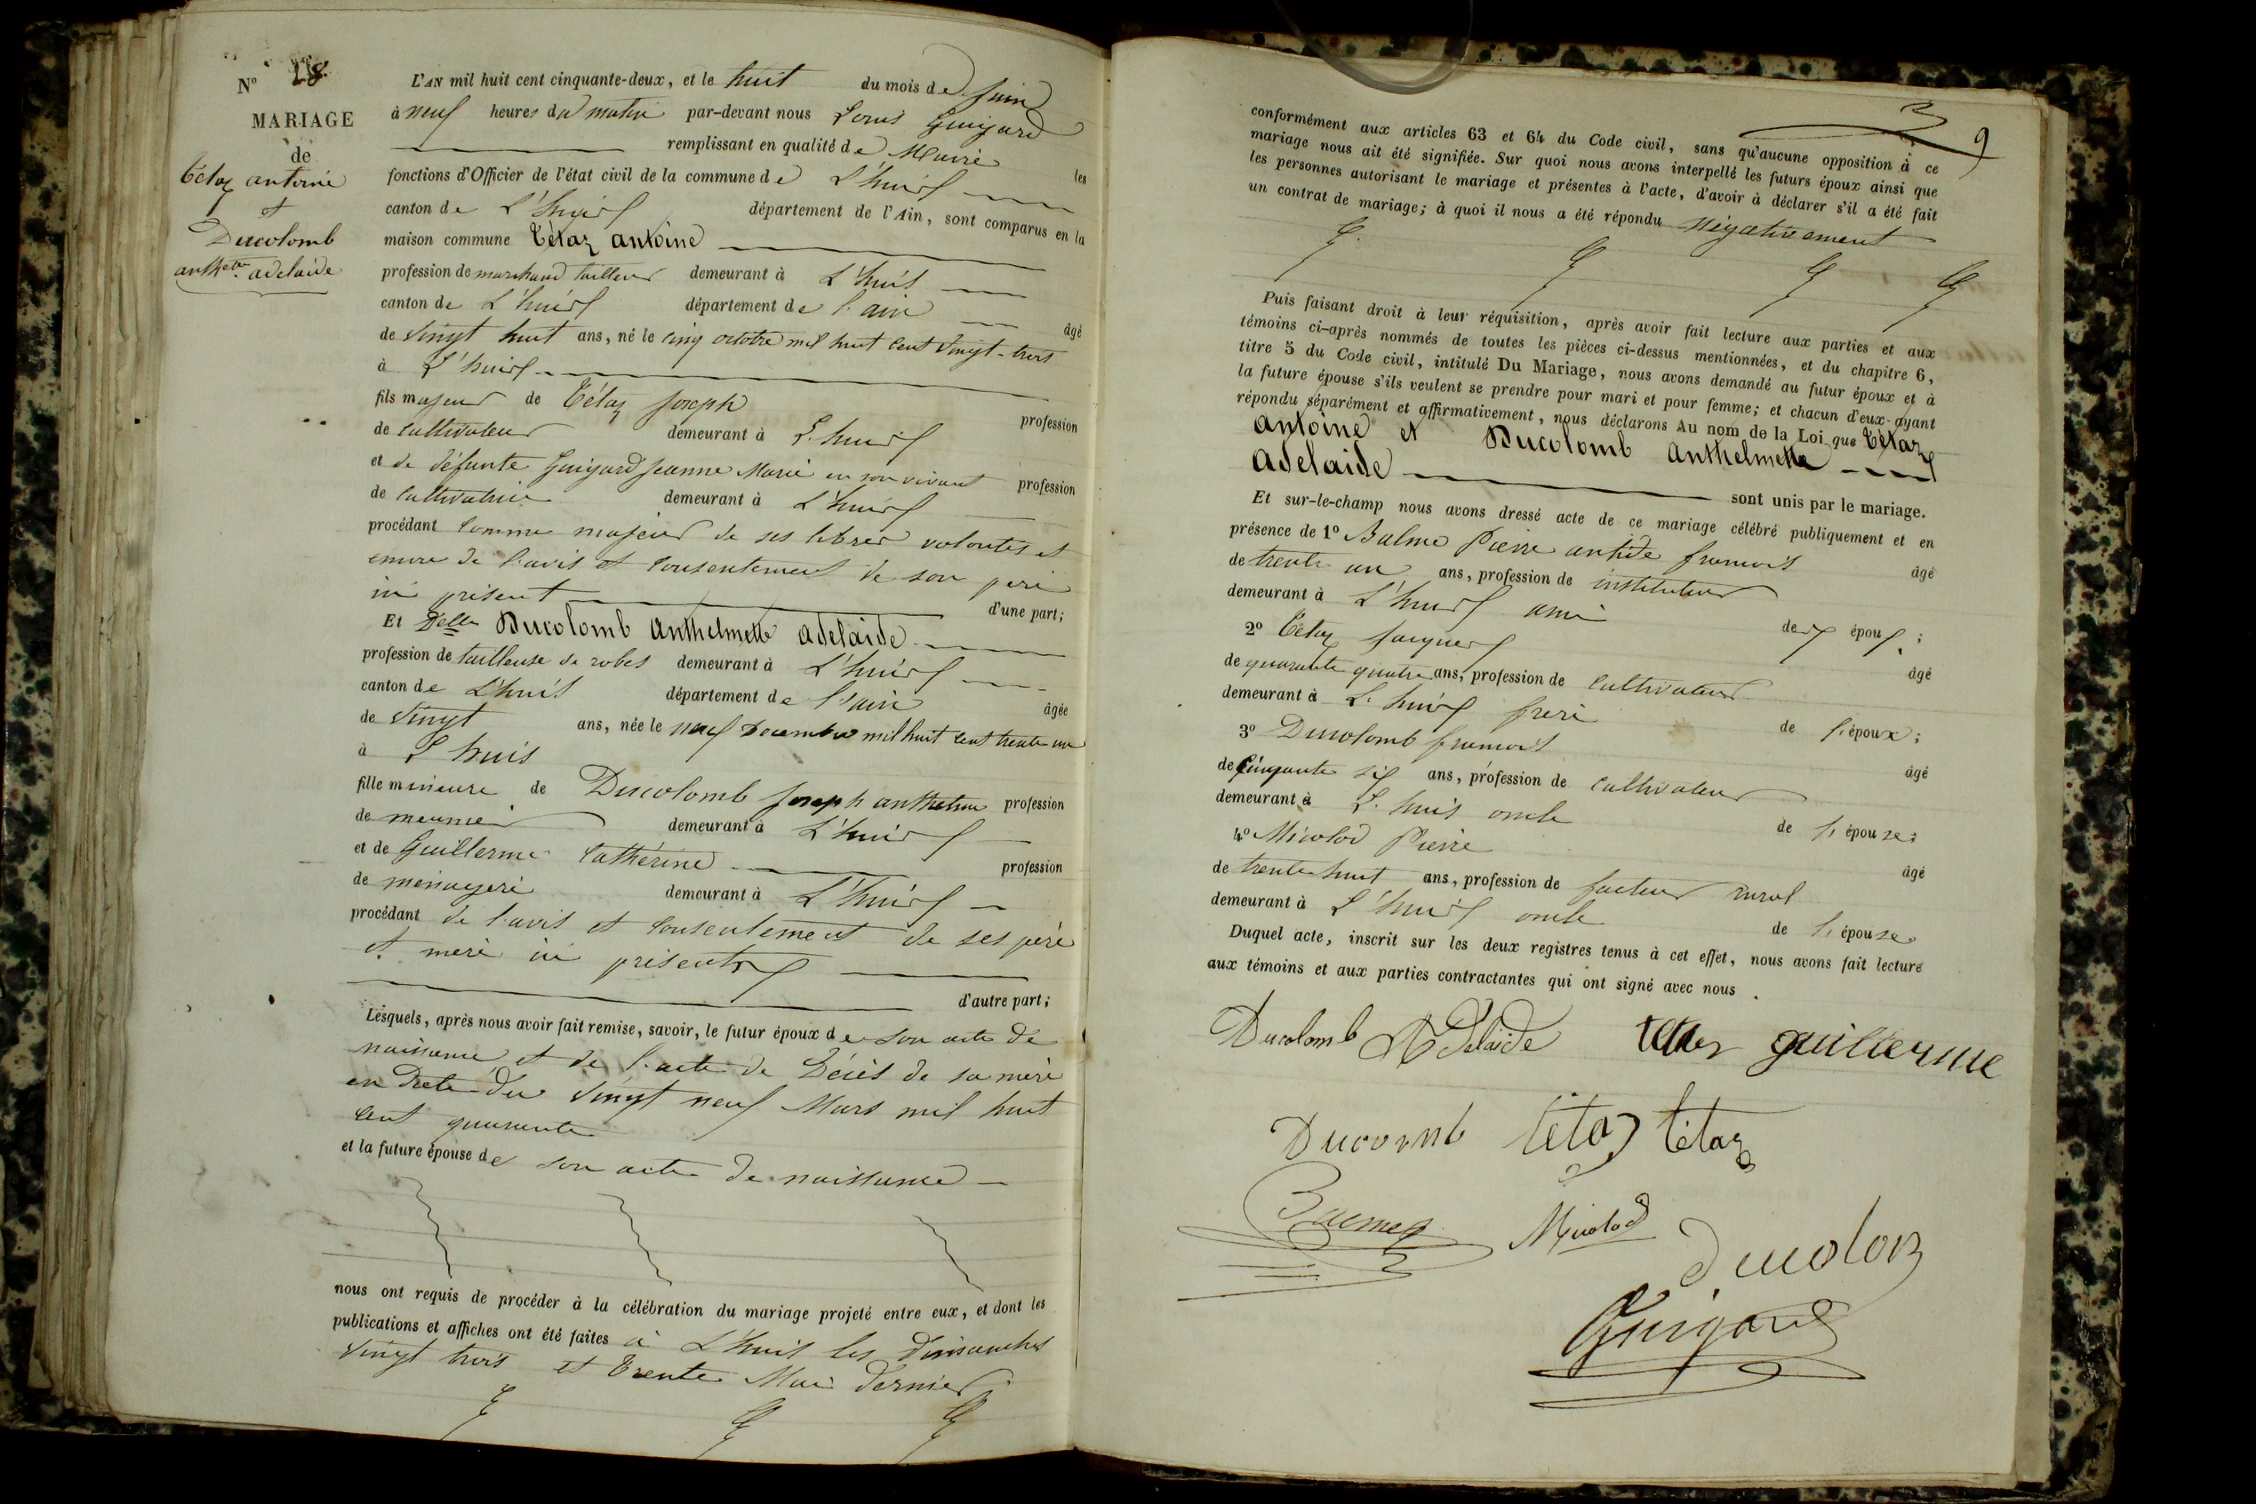 Nº 18
MARIAGE
de
Tétaz antoine
et
Ducolomb
anthette adelaide
L'AN mil huit cent cinquante-deux, et le huit du mois de Juin
à neuf heures du matin par-devant nous Louis Guigard
remplissant en qualité de Maire les
fonctions d'Officier de l'état civil de la commune de L'huis
canton de L'huis département de l'Ain, sont comparus en la
maison commune Tétaz antoine
profession de marchand tailleur demeurant à L'huis
canton de L'huis département de l'ain âgé
de vingt huit ans, né le cinq octobre mil huit cent vingt-trois
à L'huis
fils majeur de Tétaz Joseph profession
de cultivateur demeurant à L'huis
et de défunte Guigard Jeanne Marie en son vivant profession
de cultivatrice demeurant à L'huis
procédant comme majeur de ses libres volontés et
encore de l'avis et consentement de son père
ici présent d'une part;
Et Delle Ducolomb Anthelmette adelaide
profession de tailleuse de robes demeurant à L'huis
canton de L'huis département de l'ain âgée
de vingt ans, née le neuf Decembre mil huit cent trente un
à L'huis
fille mineure de Ducolomb Joseph anthelme profession
de meunier demeurant à L'huis
et de Guillerme Catherine profession
de ménagere demeurant à L'huis
procédant de l'avis et consentement de ses père
et mere ici présents
d'autre part;
Lesquels, après nous avoir fait remise, savoir, le futur époux de son acte de
naissance et de l'acte de Décès de sa mère
en date du vingt neuf Mars mil huit
cent quarante
et la future épouse de son acte de naissance
nous ont requis de procéder à la célébration du mariage projeté entre eux, et dont les
publications et affiches ont été faites à L'huis les dimanches
vingt trois et trente Mai dernier
9
conformément aux articles 63 et 64 du Code civil, sans qu'aucune opposition à ce
mariage nous ait été signifiée. Sur quoi nous avons interpellé les futurs époux ainsi que
les personnes autorisant le mariage et présentes à l'acte, d'avoir à déclarer s'il a été fait
un contrat de mariage; à quoi il nous a été répondu négativement
Puis faisant droit à leur réquisition, après avoir fait lecture aux parties et aux
témoins ci-après nommés de toutes les pièces ci-dessus mentionnées, et du chapitre 6,
titre 5 du Code civil, intitulé Du Mariage, nous avons demandé au futur époux et à
la future épouse s'ils veulent se prendre pour mari et pour femme; et chacun d'eux ayant
répondu séparément et affirmativement, nous déclarons Au nom de la Loi que Tétaz
antoine et Ducolomb Anthelmette
adelaide sont unis par le mariage.
Et sur-le-champ nous avons dressé acte de ce mariage célébré publiquement et en
présence de 1º Balme Pierre antide francois âgé
de trente un ans, profession de instituteur
demeurant à L'huis ami des époux;
2º Tétaz Jacques âgé
de quarante quatre ans, profession de cultivateur
demeurant à L'huis frere de l'époux;
3º Ducolomb francois âgé
de cinquante six ans, profession de cultivateur
demeurant à L'huis oncle de l'épouse;
4º Micolod Pierre âgé
de trente huit ans, profession de facteur rural
demeurant à L'huis oncle de l'épouse
Duquel acte, inscrit sur les deux registres tenus à cet effet, nous avons fait lecture
aux témoins et aux parties contractantes qui ont signé avec nous.
Ducolomb Adelaide tetaz guillerme
Ducolomb tétaz tétaz
Balme Micolod ducolon
Guigard